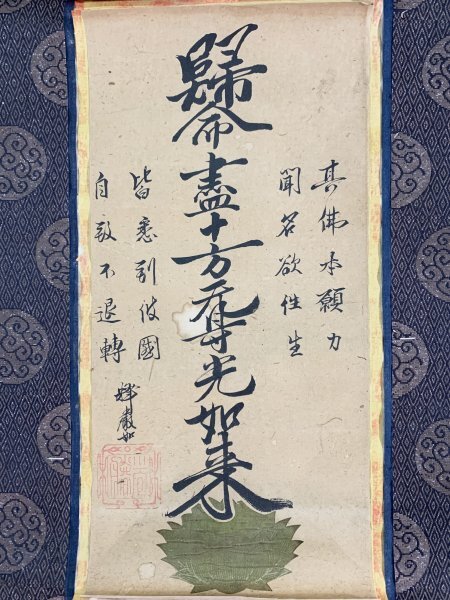 其佛本願力
聞名欲往生
歸命盡十方无㝵光如来
皆悉到彼國
自致不退轉
釋嚴如